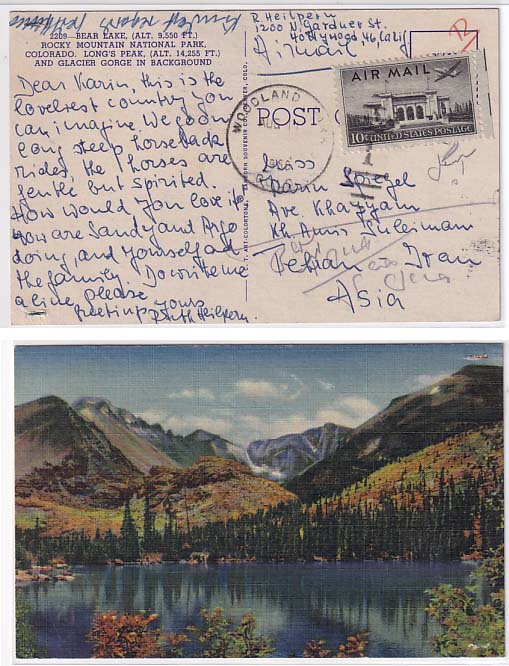 R. Heilpern
1200 N. Gardner St.
Hollywood 46, Calif
Airmail
2209—BEAR LAKE, (ALT. 9,550 FT.)
ROCKY MOUNTAIN NATIONAL PARK,
COLORADO. LONG'S PEAK, (ALT. 14,255 FT.)
AND GLACIER GORGE IN BACKGROUND
Dear Karin, this is the
loveliest country you
can imagine. We go on
long steep horseback
rides, the horses are
gentle but spirited.
How would you love it
How are Sandy and Argo
doing, and yourself and
the family. Do write me
a line, please
Yours
Ruth Heilpern.
POST
WOODLAND
AIR MAIL
10¢ UNITED STATES POSTAGE
Miss
Karin Spiegel
Ave. Khayyam
Kh. Amir Suleiman
Tehran Iran
Asia